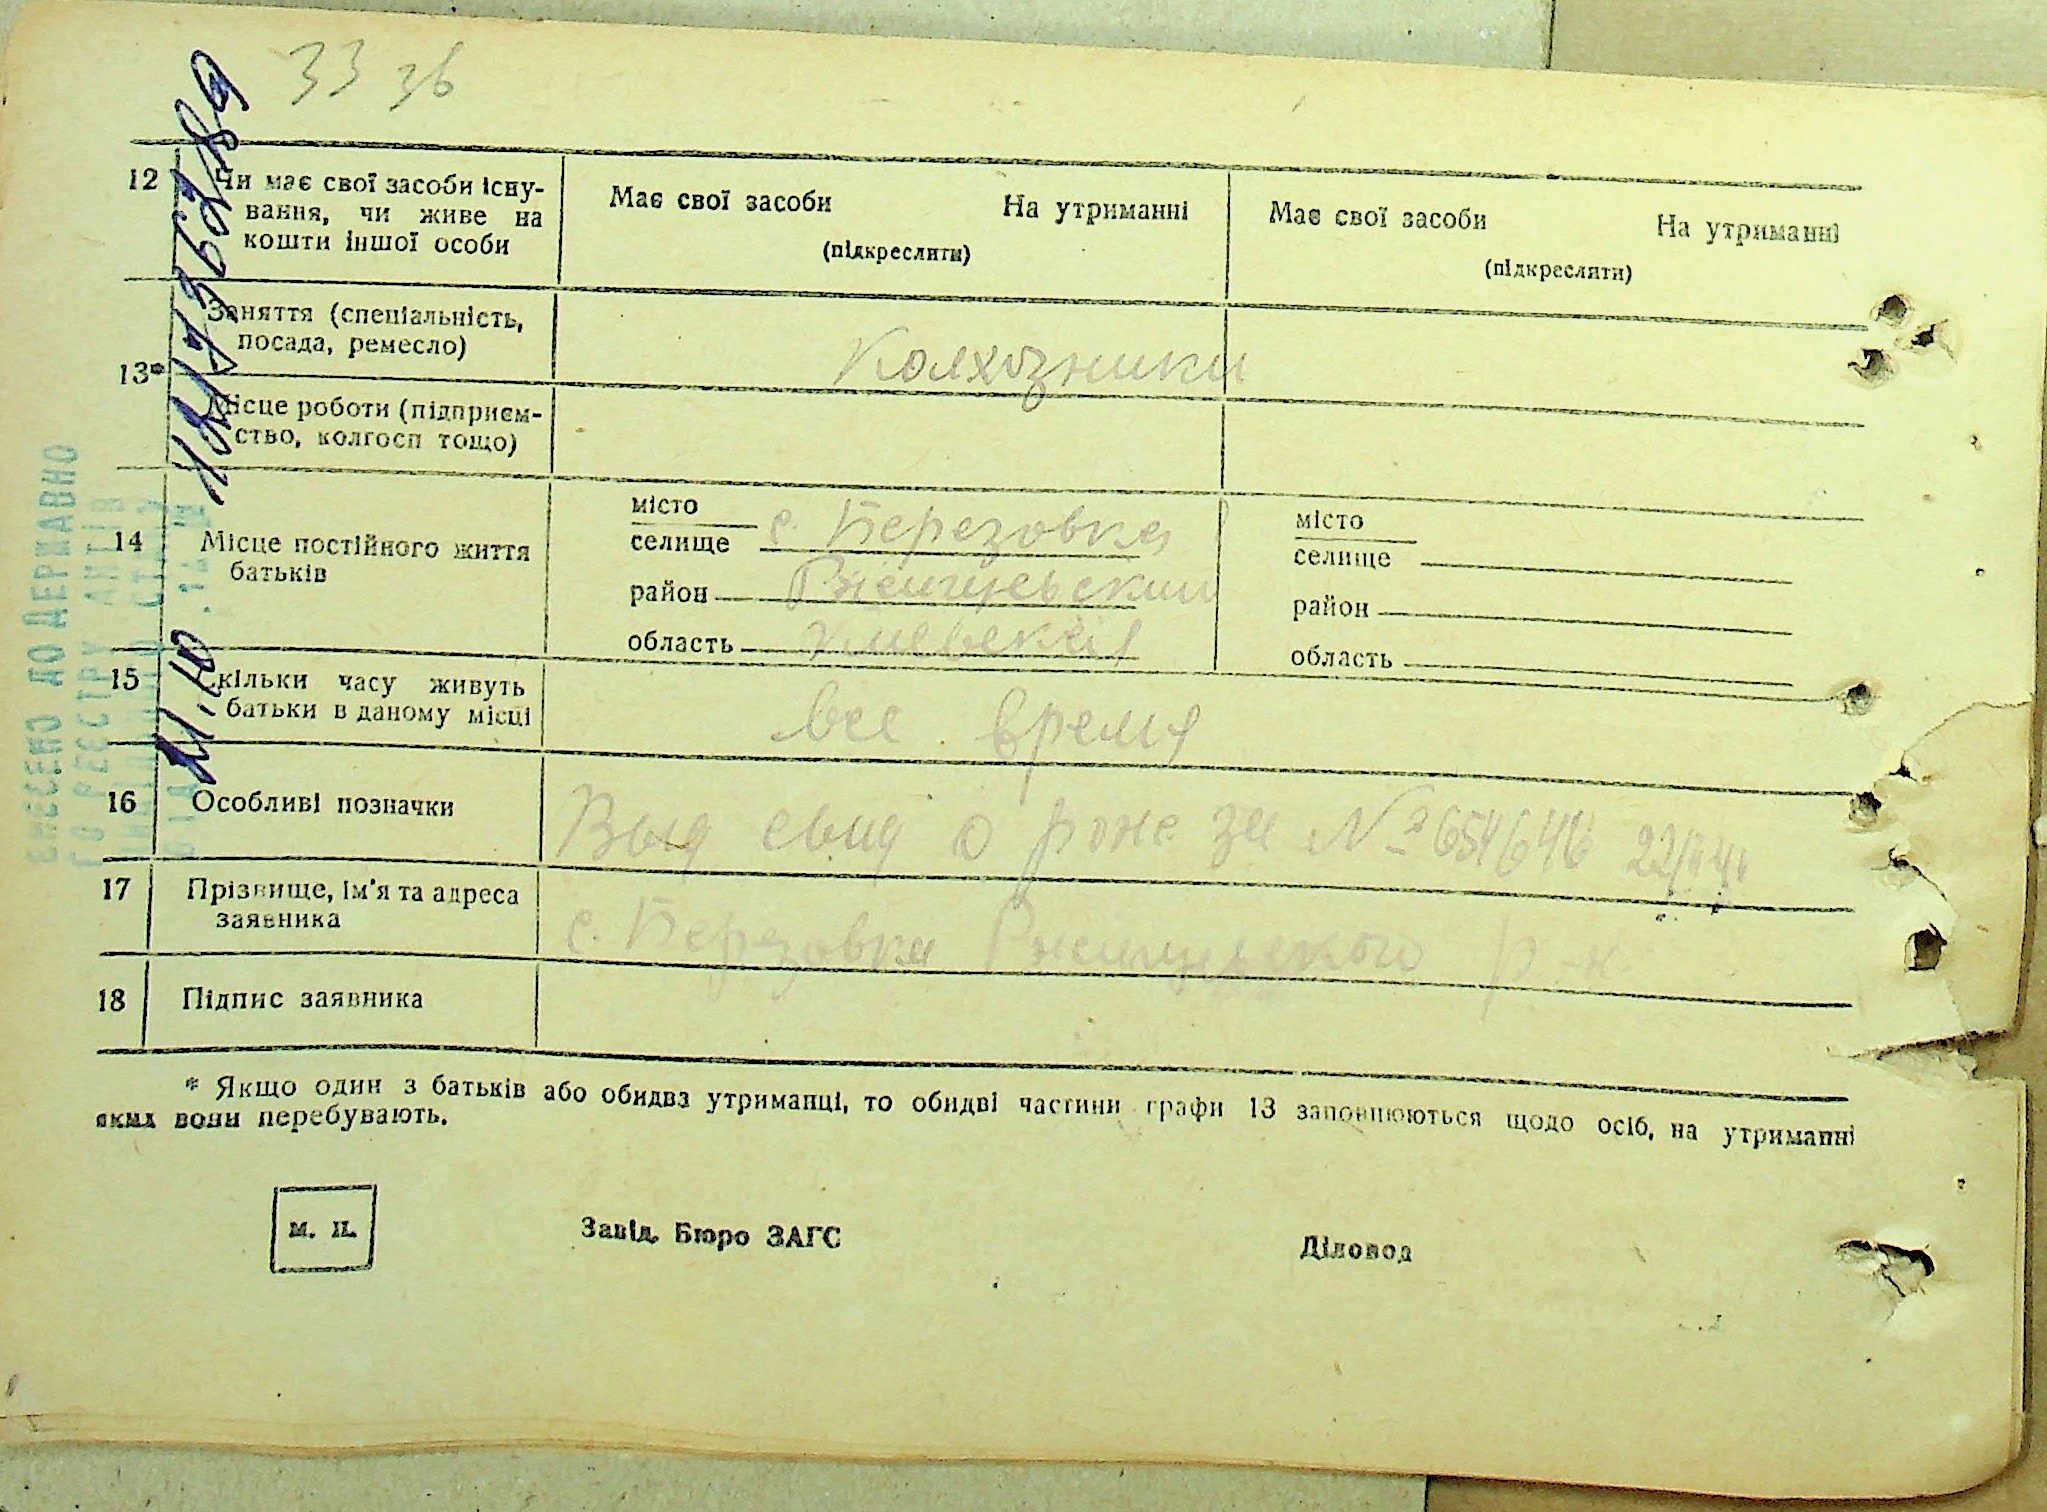 33 зв
12 Чи має свої засоби існу-
вання, чи живе на
кошти іншої особи
Має свої засоби На утриманні
(підкреслити)
Має свої засоби На утриманні
(підкреслити)
13*
Заняття (спеціальність,
посада, ремесло)
Колхозники
Місце роботи (підприєм-
ство, колгосп тощо)
14 Місце постійного життя
батьків
місто
селище с. Березовка
район
область
місто
селище
район
область
15 Скільки часу живуть
батьки в даному місці
все время
16 Особливі позначки
Выд свид о рож за № 654646
17 Прізвище, ім'я та адреса
заявника
с. Березовка р-н
18 Підпис заявника
* Якщо один з батьків або обидва утриманці, то обидві частини графи 13 заповнюються щодо осіб, на утриманні
яких вони перебувають.
М. П.
Завід. Бюро ЗАГС
Діловод
ВНЕСЕНО ДО ДЕРЖАВНО
ГО РЕЄСТРУ АКТІВ